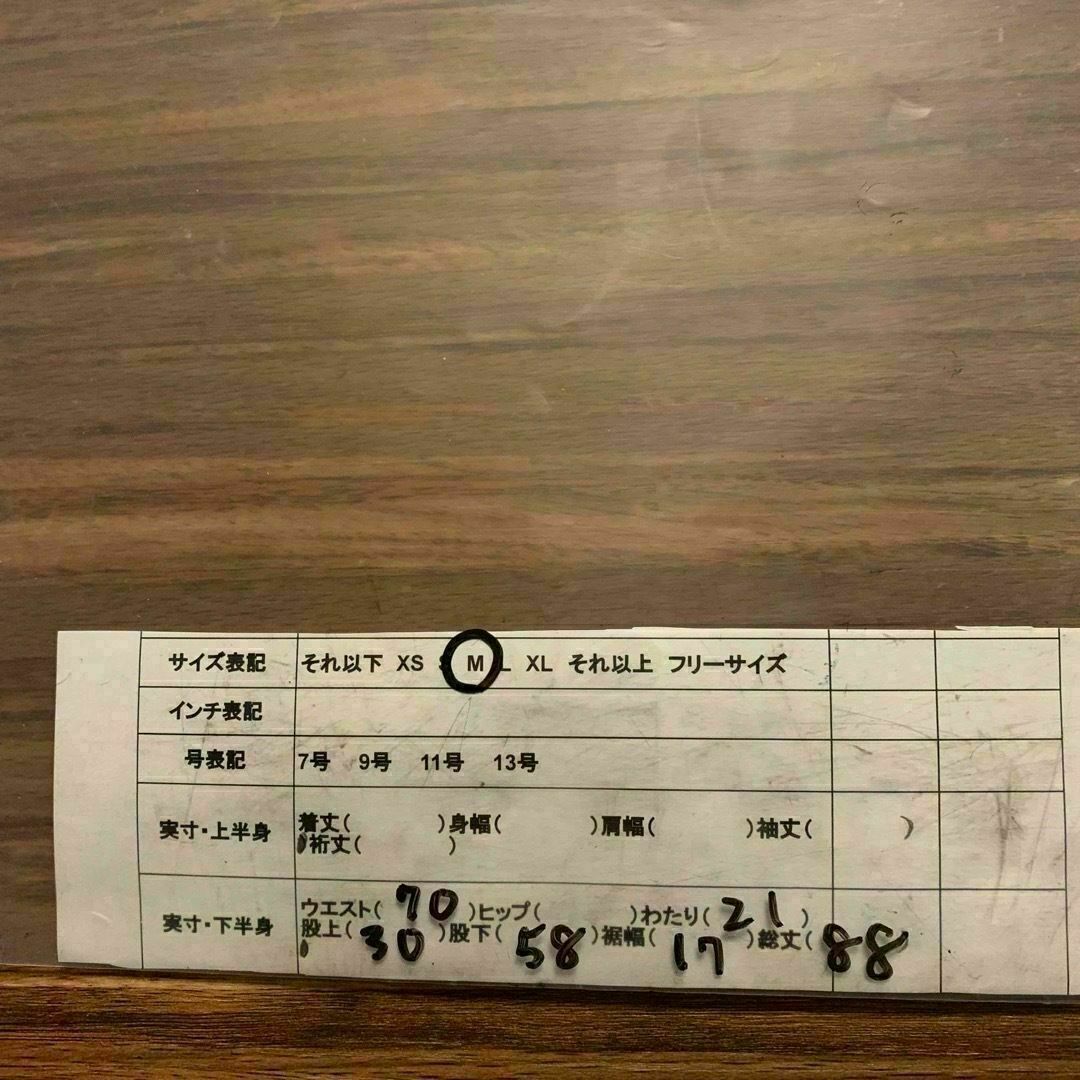 サイズ表記 それ以下 XS S M L XL それ以上 フリーサイズ
インチ表記
号表記 7号 9号 11号 13号
実寸・上半身 着丈( )身幅( )肩幅( )袖丈( )
裄丈( )
実寸・下半身 ウエスト( 70 )ヒップ( )わたり( 21 )
股上( 30 )股下( 58 )裾幅( 17 )総丈( 88